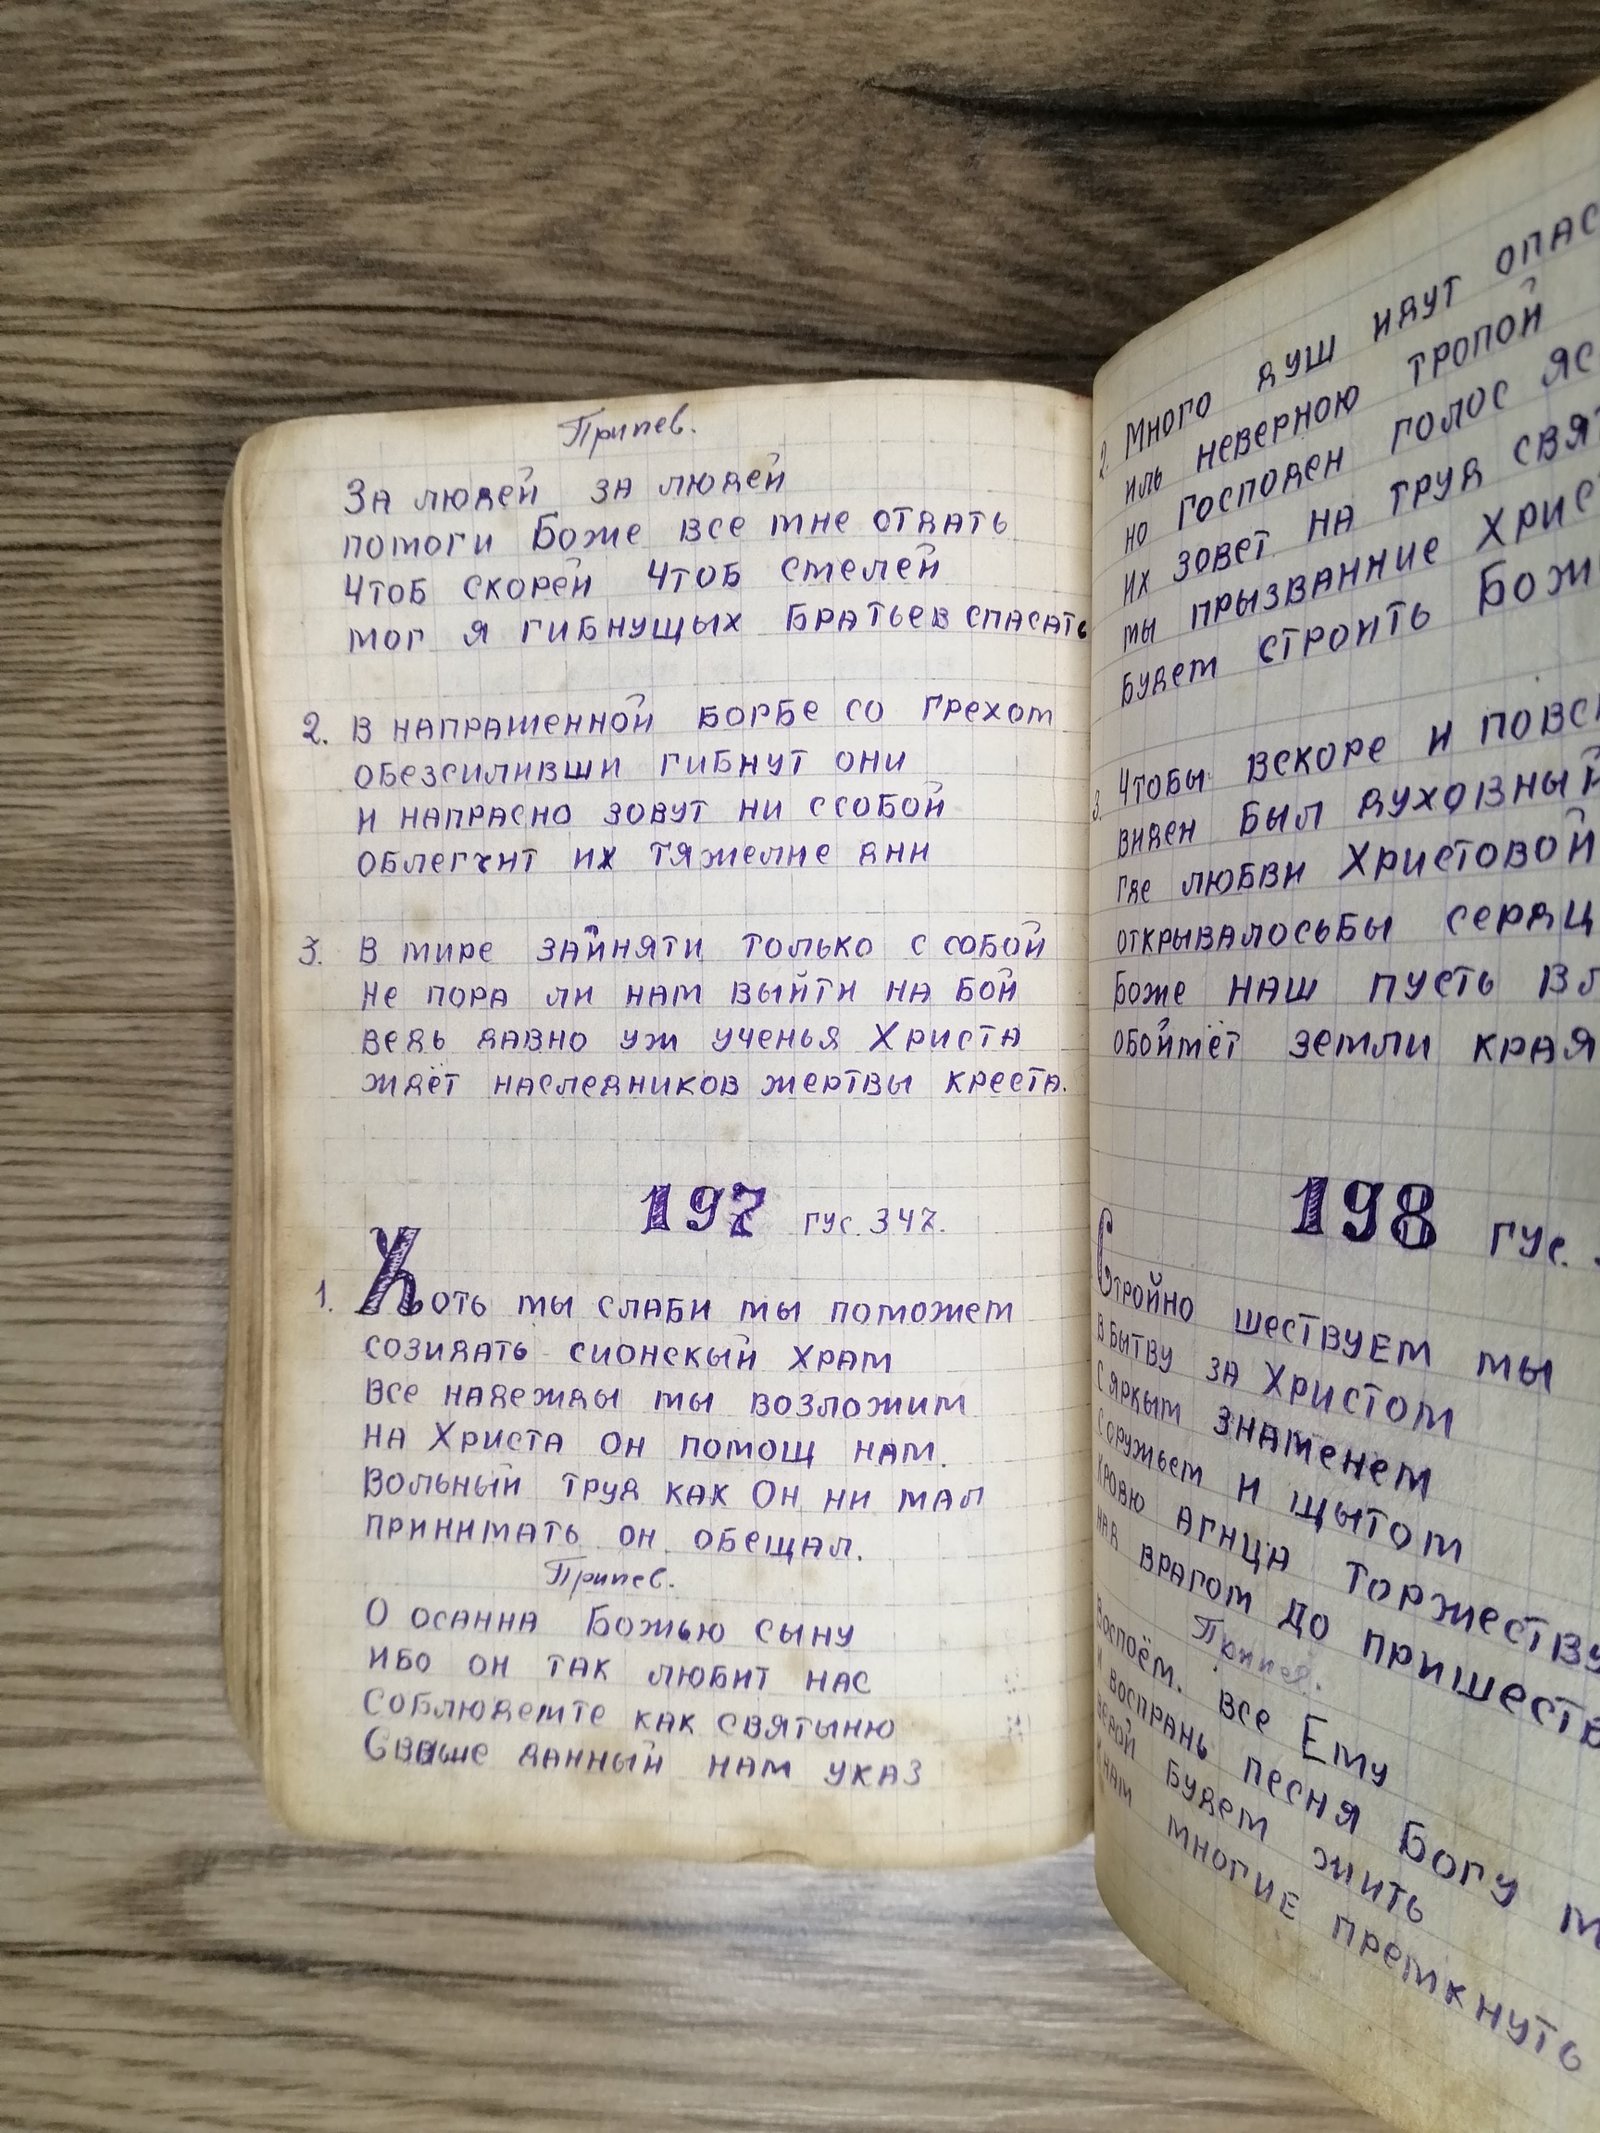 Припев.
За людей за людей
помоги Боже все мне отдать
Чтоб скорей Чтоб смелей
мог я гибнущых братьев спасать
2. В напраженной борбе со грехом
обезсиливши гибнут они
и напрасно зовут ни ссобой
облегчит их тяжелие дни
3. В мире зайняти только с собой
Не пора ли нам выйти на бой
ведь давно уж ученья Христа
ждёт наследников жертвы креста.
197 гус. 347.
1. Хоть мы слаби мы поможем
созидать сионский храм
все надежды мы возложим
на Христа он помощ нам.
Вольный труд как Он ни мал
принимать он обещал.
Припев.
О осанна Божью сыну
ибо он так любит нас
соблюдемте как святыню
Свыше данный нам указ
2. Много душ идут опас
иль неверною тропой
но Господен голос яс
их зовет на труд свят
мы прызванние Христ
будем строить Божи
3. Чтобы вскоре и повс
виден был духовный
где любви Христовой
открывалосьбы сердц
Боже наш пусть вл
обоймёт земли края
198 гус.
Стройно шествуем мы
в бытву за Христом
с ярким знаменем
с оружьем и щытом
кровю агнца торжеству
над врагом до пришеств
Припев.
Воспоём все Ему
и воспрань песня Богу
верой будем жить
к нам многие премкнуть